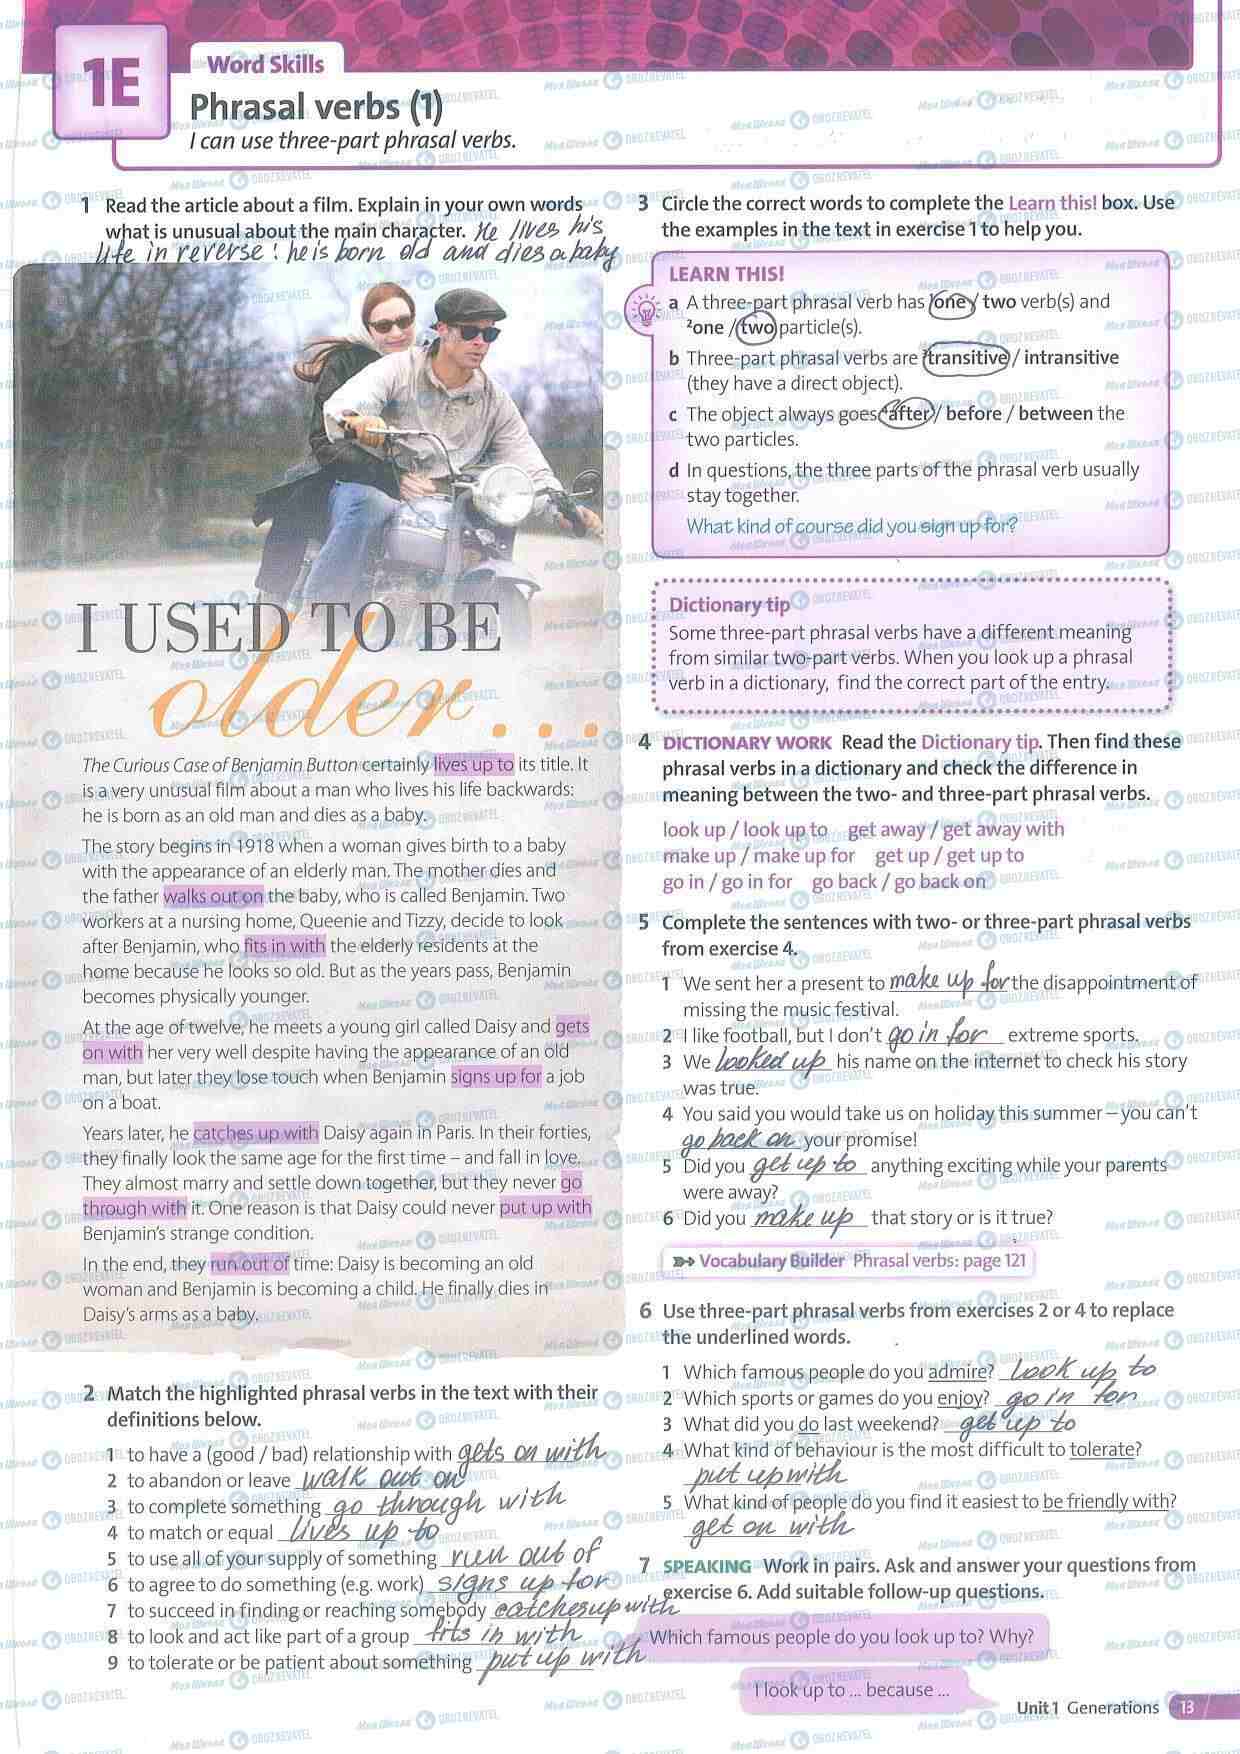 1E
Word Skills
Phrasal verbs (1)
I can use three-part phrasal verbs.
1 Read the article about a film. Explain in your own words
what is unusual about the main character. He lives his
life in reverse: he is born old and dies a baby
I USED TO BE
older...
The Curious Case of Benjamin Button certainly lives up to its title. It
is a very unusual film about a man who lives his life backwards:
he is born as an old man and dies as a baby.
The story begins in 1918 when a woman gives birth to a baby
with the appearance of an elderly man. The mother dies and
the father walks out on the baby, who is called Benjamin. Two
workers at a nursing home, Queenie and Tizzy, decide to look
after Benjamin, who fits in with the elderly residents at the
home because he looks so old. But as the years pass, Benjamin
becomes physically younger.
At the age of twelve, he meets a young girl called Daisy and gets
on with her very well despite having the appearance of an old
man, but later they lose touch when Benjamin signs up for a job
on a boat.
Years later, he catches up with Daisy again in Paris. In their forties,
they finally look the same age for the first time – and fall in love.
They almost marry and settle down together, but they never go
through with it. One reason is that Daisy could never put up with
Benjamin's strange condition.
In the end, they run out of time: Daisy is becoming an old
woman and Benjamin is becoming a child. He finally dies in
Daisy's arms as a baby.
2 Match the highlighted phrasal verbs in the text with their
definitions below.
1 to have a (good / bad) relationship with gets on with
2 to abandon or leave walk out on
3 to complete something go through with
4 to match or equal lives up to
5 to use all of your supply of something run out of
6 to agree to do something (e.g. work) signs up for
7 to succeed in finding or reaching somebody catches up with
8 to look and act like part of a group fits in with
9 to tolerate or be patient about something put up with
3 Circle the correct words to complete the Learn this! box. Use
the examples in the text in exercise 1 to help you.
LEARN THIS!
a A three-part phrasal verb has ¹one / two verb(s) and
²one / two particle(s).
b Three-part phrasal verbs are ³transitive / intransitive
(they have a direct object).
c The object always goes ⁴after / before / between the
two particles.
d In questions, the three parts of the phrasal verb usually
stay together.
What kind of course did you sign up for?
Dictionary tip
Some three-part phrasal verbs have a different meaning
from similar two-part verbs. When you look up a phrasal
verb in a dictionary, find the correct part of the entry.
4 DICTIONARY WORK Read the Dictionary tip. Then find these
phrasal verbs in a dictionary and check the difference in
meaning between the two- and three-part phrasal verbs.
look up / look up to get away / get away with
make up / make up for get up / get up to
go in / go in for go back / go back on
5 Complete the sentences with two- or three-part phrasal verbs
from exercise 4.
1 We sent her a present to make up for the disappointment of
missing the music festival.
2 I like football, but I don't go in for extreme sports.
3 We looked up his name on the internet to check his story
was true.
4 You said you would take us on holiday this summer – you can't
go back on your promise!
5 Did you get up to anything exciting while your parents
were away?
6 Did you make up that story or is it true?
Vocabulary Builder Phrasal verbs: page 121
6 Use three-part phrasal verbs from exercises 2 or 4 to replace
the underlined words.
1 Which famous people do you admire? look up to
2 Which sports or games do you enjoy? go in for
3 What did you do last weekend? get up to
4 What kind of behaviour is the most difficult to tolerate?
put up with
5 What kind of people do you find it easiest to be friendly with?
get on with
7 SPEAKING Work in pairs. Ask and answer your questions from
exercise 6. Add suitable follow-up questions.
Which famous people do you look up to? Why?
I look up to ... because ...
Unit 1 Generations 13